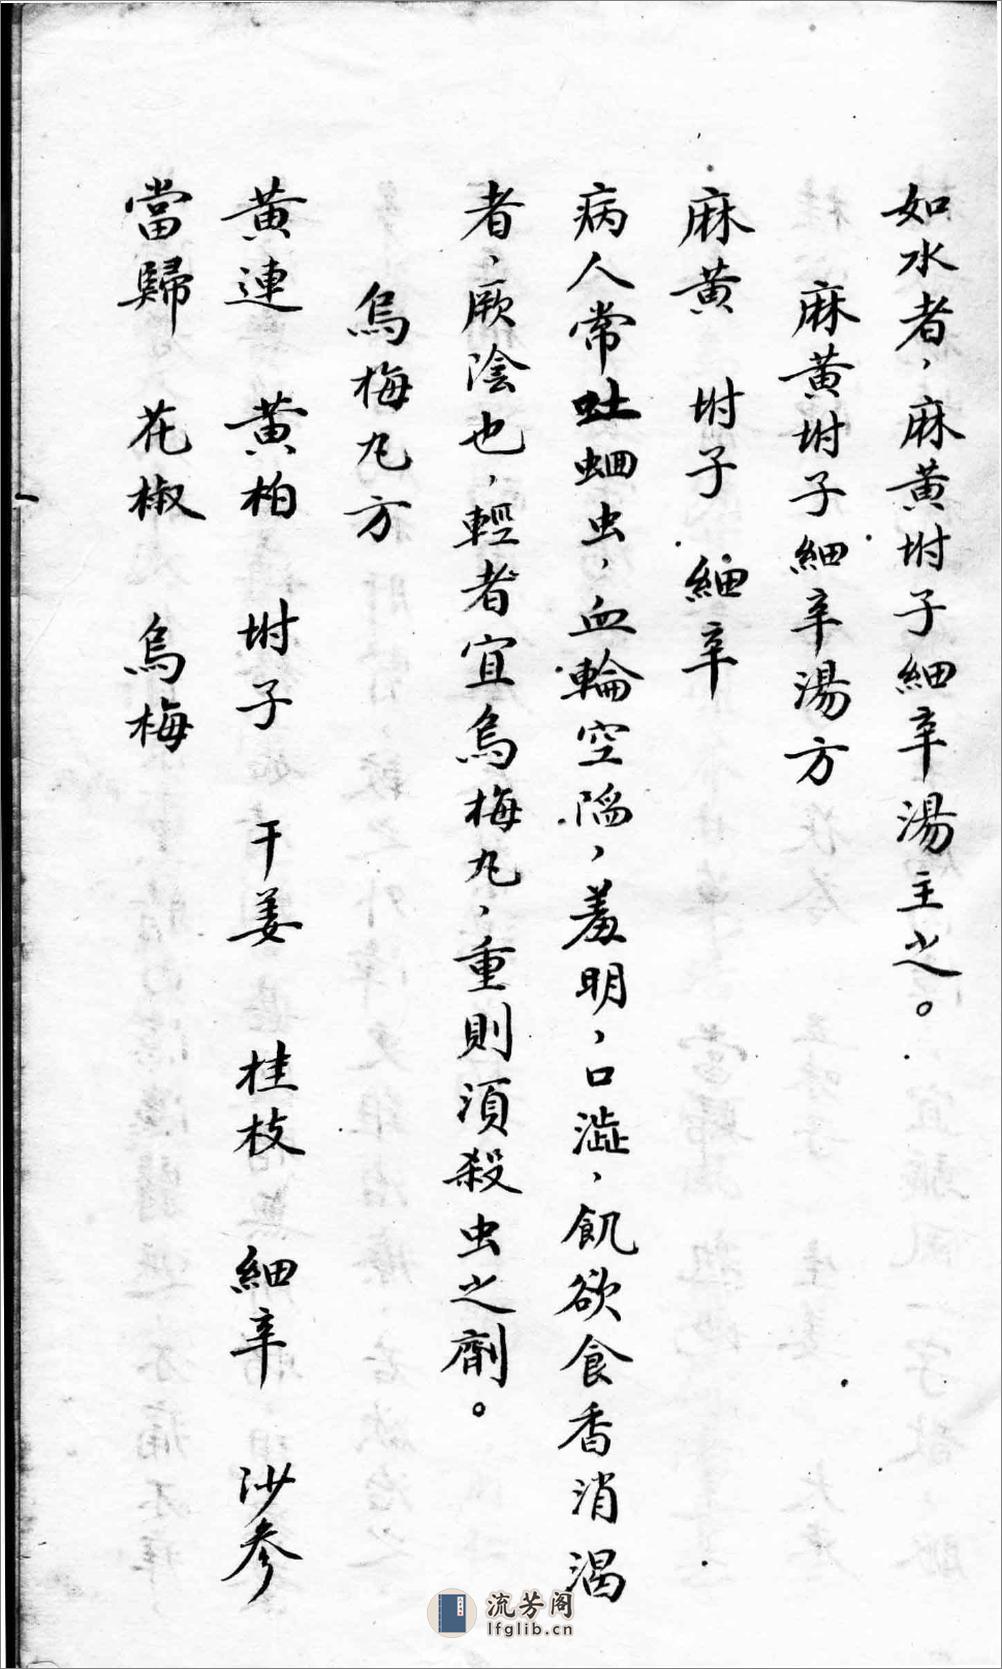 如水者，麻黄坿子細辛湯主之。
麻黄坿子細辛湯方
麻黄　坿子　細辛
病人常吐蛔虫，血輪空陷，羞明，口澁，飢欲食香消渴
者，厥陰也，輕者宜烏梅丸，重則須殺虫之劑。
烏梅丸方
黄連　黄柏　坿子　干姜　桂枝　細辛　沙参
當歸　花椒　烏梅
流芳阁
lfglib.cn